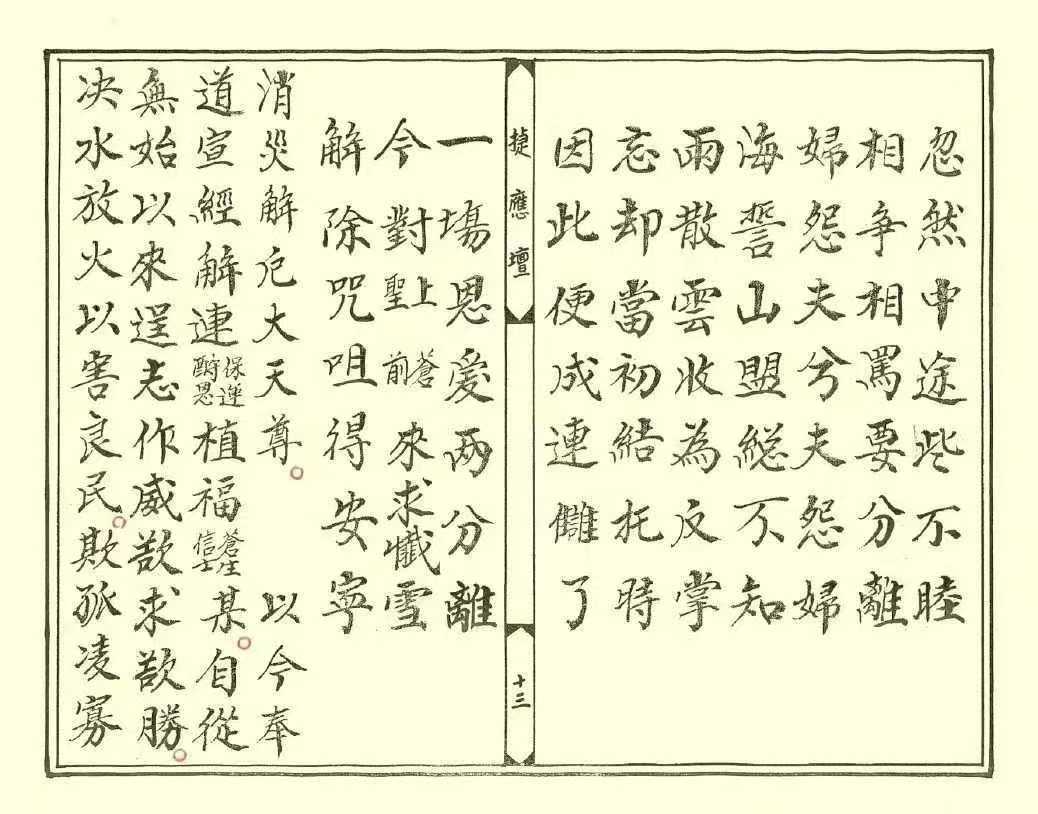 忽然中途些不睦
相爭相罵要分離
婦怨夫兮夫怨婦
海誓山盟総不知
雨散雲收為反掌
忘却當初結托時
因此便成連讎了
捷應壇
十三
一場恩愛两分離
今對聖上前蒼來求懺雪
解除咒咀得安寧
消災解厄大天尊。以今奉
道宣經解連保運酧恩植福蒼生信士某。自從
無始以來逞志作威欲求欲勝。
决水放火以害良民。欺孤凌寡